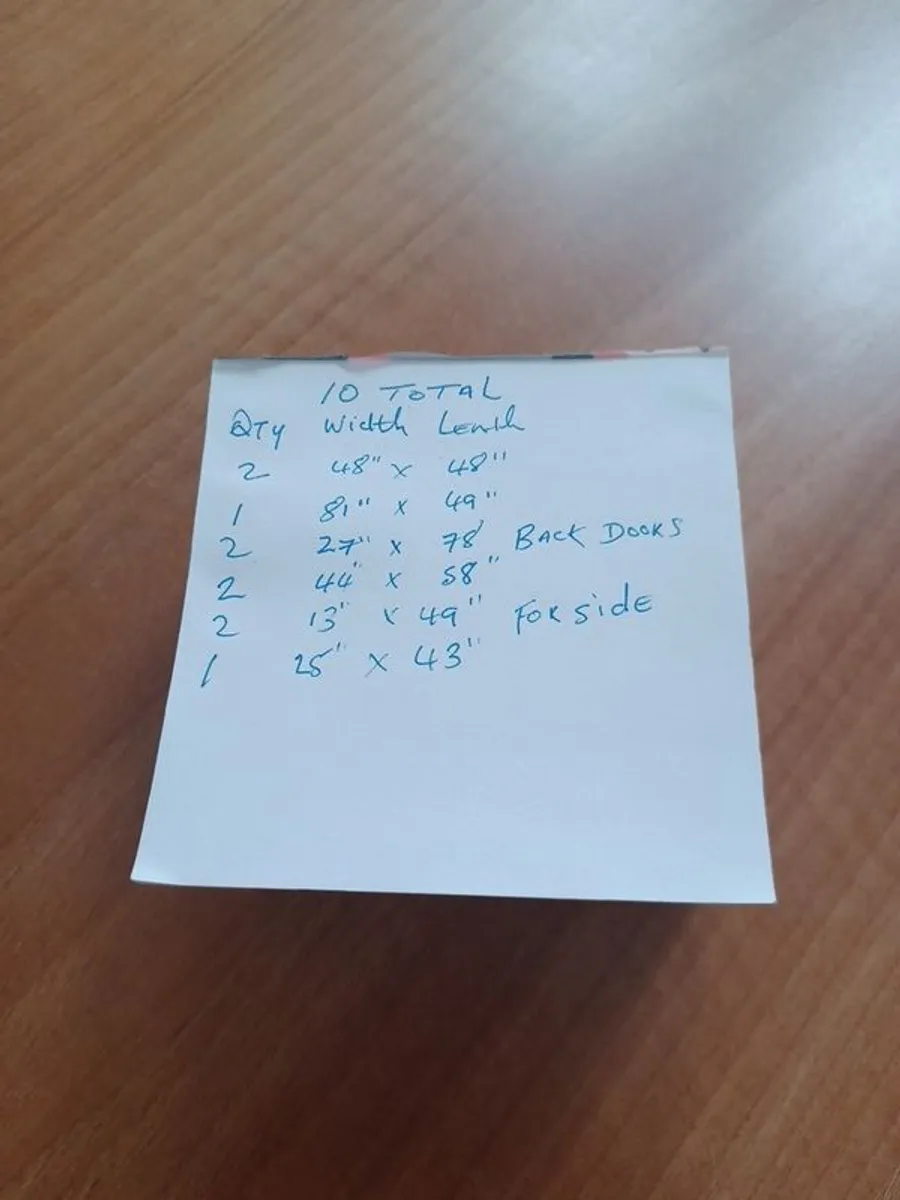 10 TOTAL
QTY Width Length
2 48" x 48"
1 81" x 49"
2 27" x 78' BACK DOORS
2 44" x 58"
2 13" x 49" FOR SIDE
1 25" x 43"